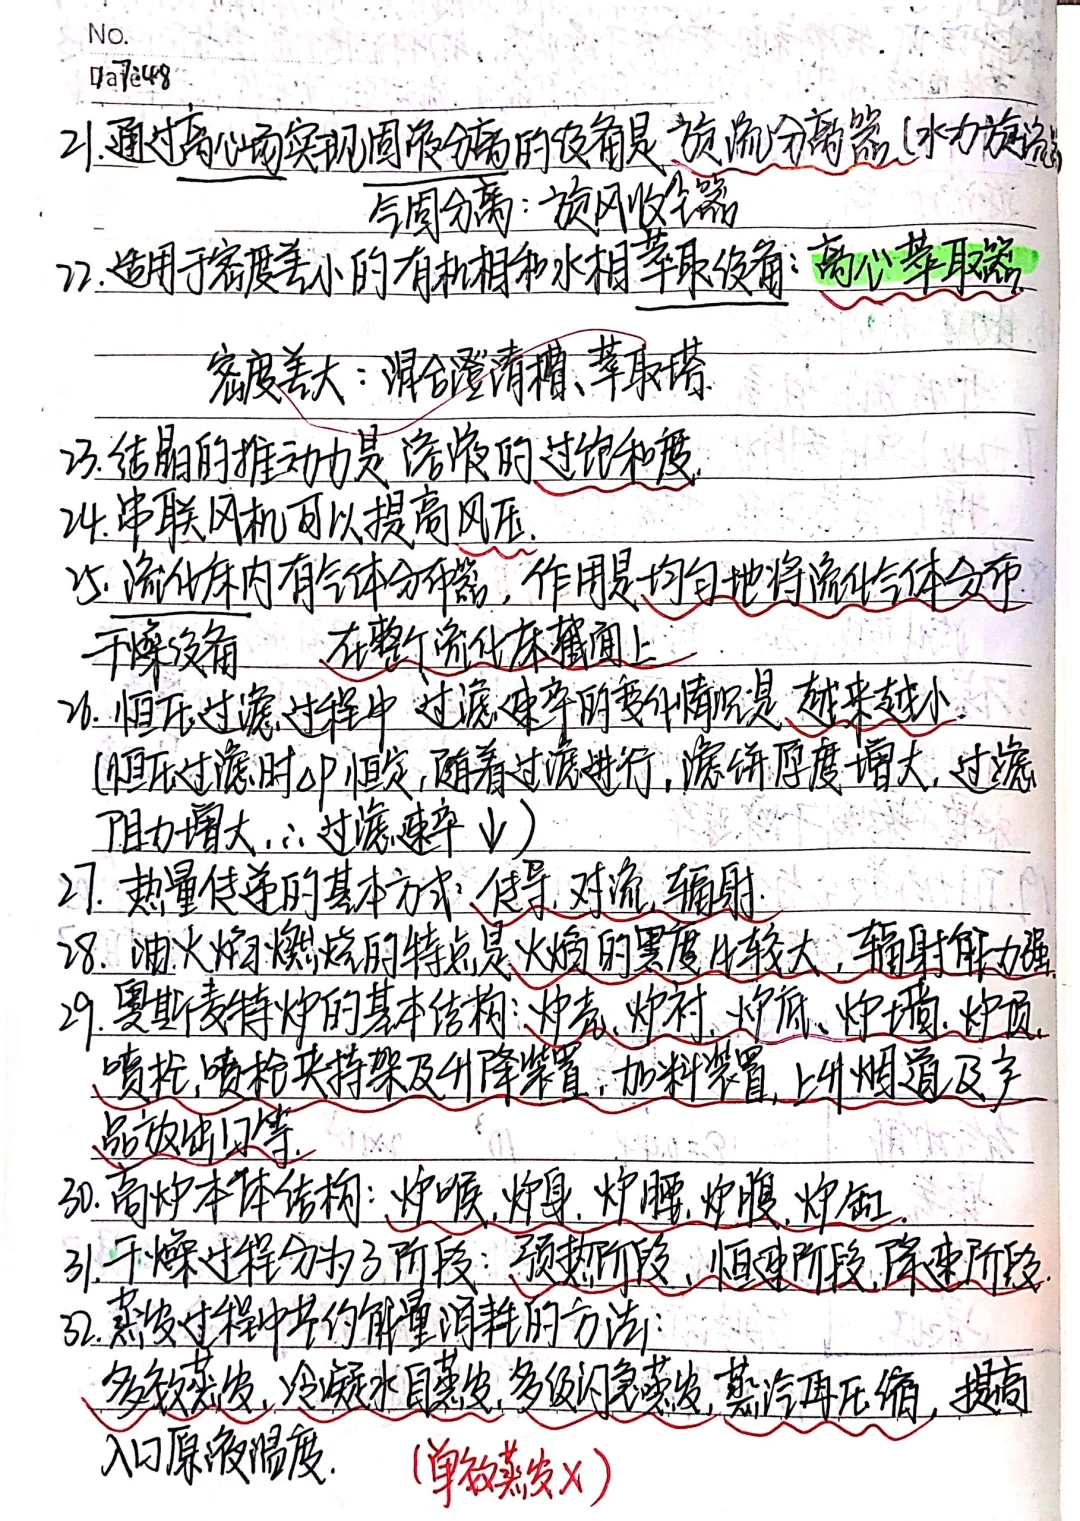 No.
Date 748
21.通过离心场实现固液分离的设备是 旋流分离器(水力旋流器)
气固分离:旋风收尘器
22.适用于密度差小的有机相和水相萃取设备:离心萃取器.
密度差大:混合澄清槽、萃取塔.
23.结晶的推动力是 溶液的过饱和度.
24.串联风机可以提高风压.
25.流化床内有气体分布器,作用是均匀地将流化气体分布
干燥设备 在整个流化床截面上
26.恒压过滤过程中 过滤速率的变化情况是 越来越小.
(恒压过滤时△P恒定,随着过滤进行,滤饼厚度增大,过滤
阻力增大,∴过滤速率↓)
27. 热量传递的基本方式:传导,对流,辐射.
28. 油火焰燃烧的特点是火焰的黑度比较大,辐射能力强.
29.奥斯麦特炉的基本结构:炉壳、炉衬、炉底、炉墙、炉顶、
喷枪,喷枪夹持架及升降装置,加料装置,上升烟道及产
品放出口等.
30.高炉本体结构:炉喉,炉身,炉腰,炉腹,炉缸.
31.干燥过程分为3阶段:预热阶段,恒速阶段,降速阶段.
32.蒸发过程中节约能量消耗的方法:
多效蒸发,冷凝水自蒸发,多级闪急蒸发,蒸汽再压缩,提高
入口原液温度. (单效蒸发X)